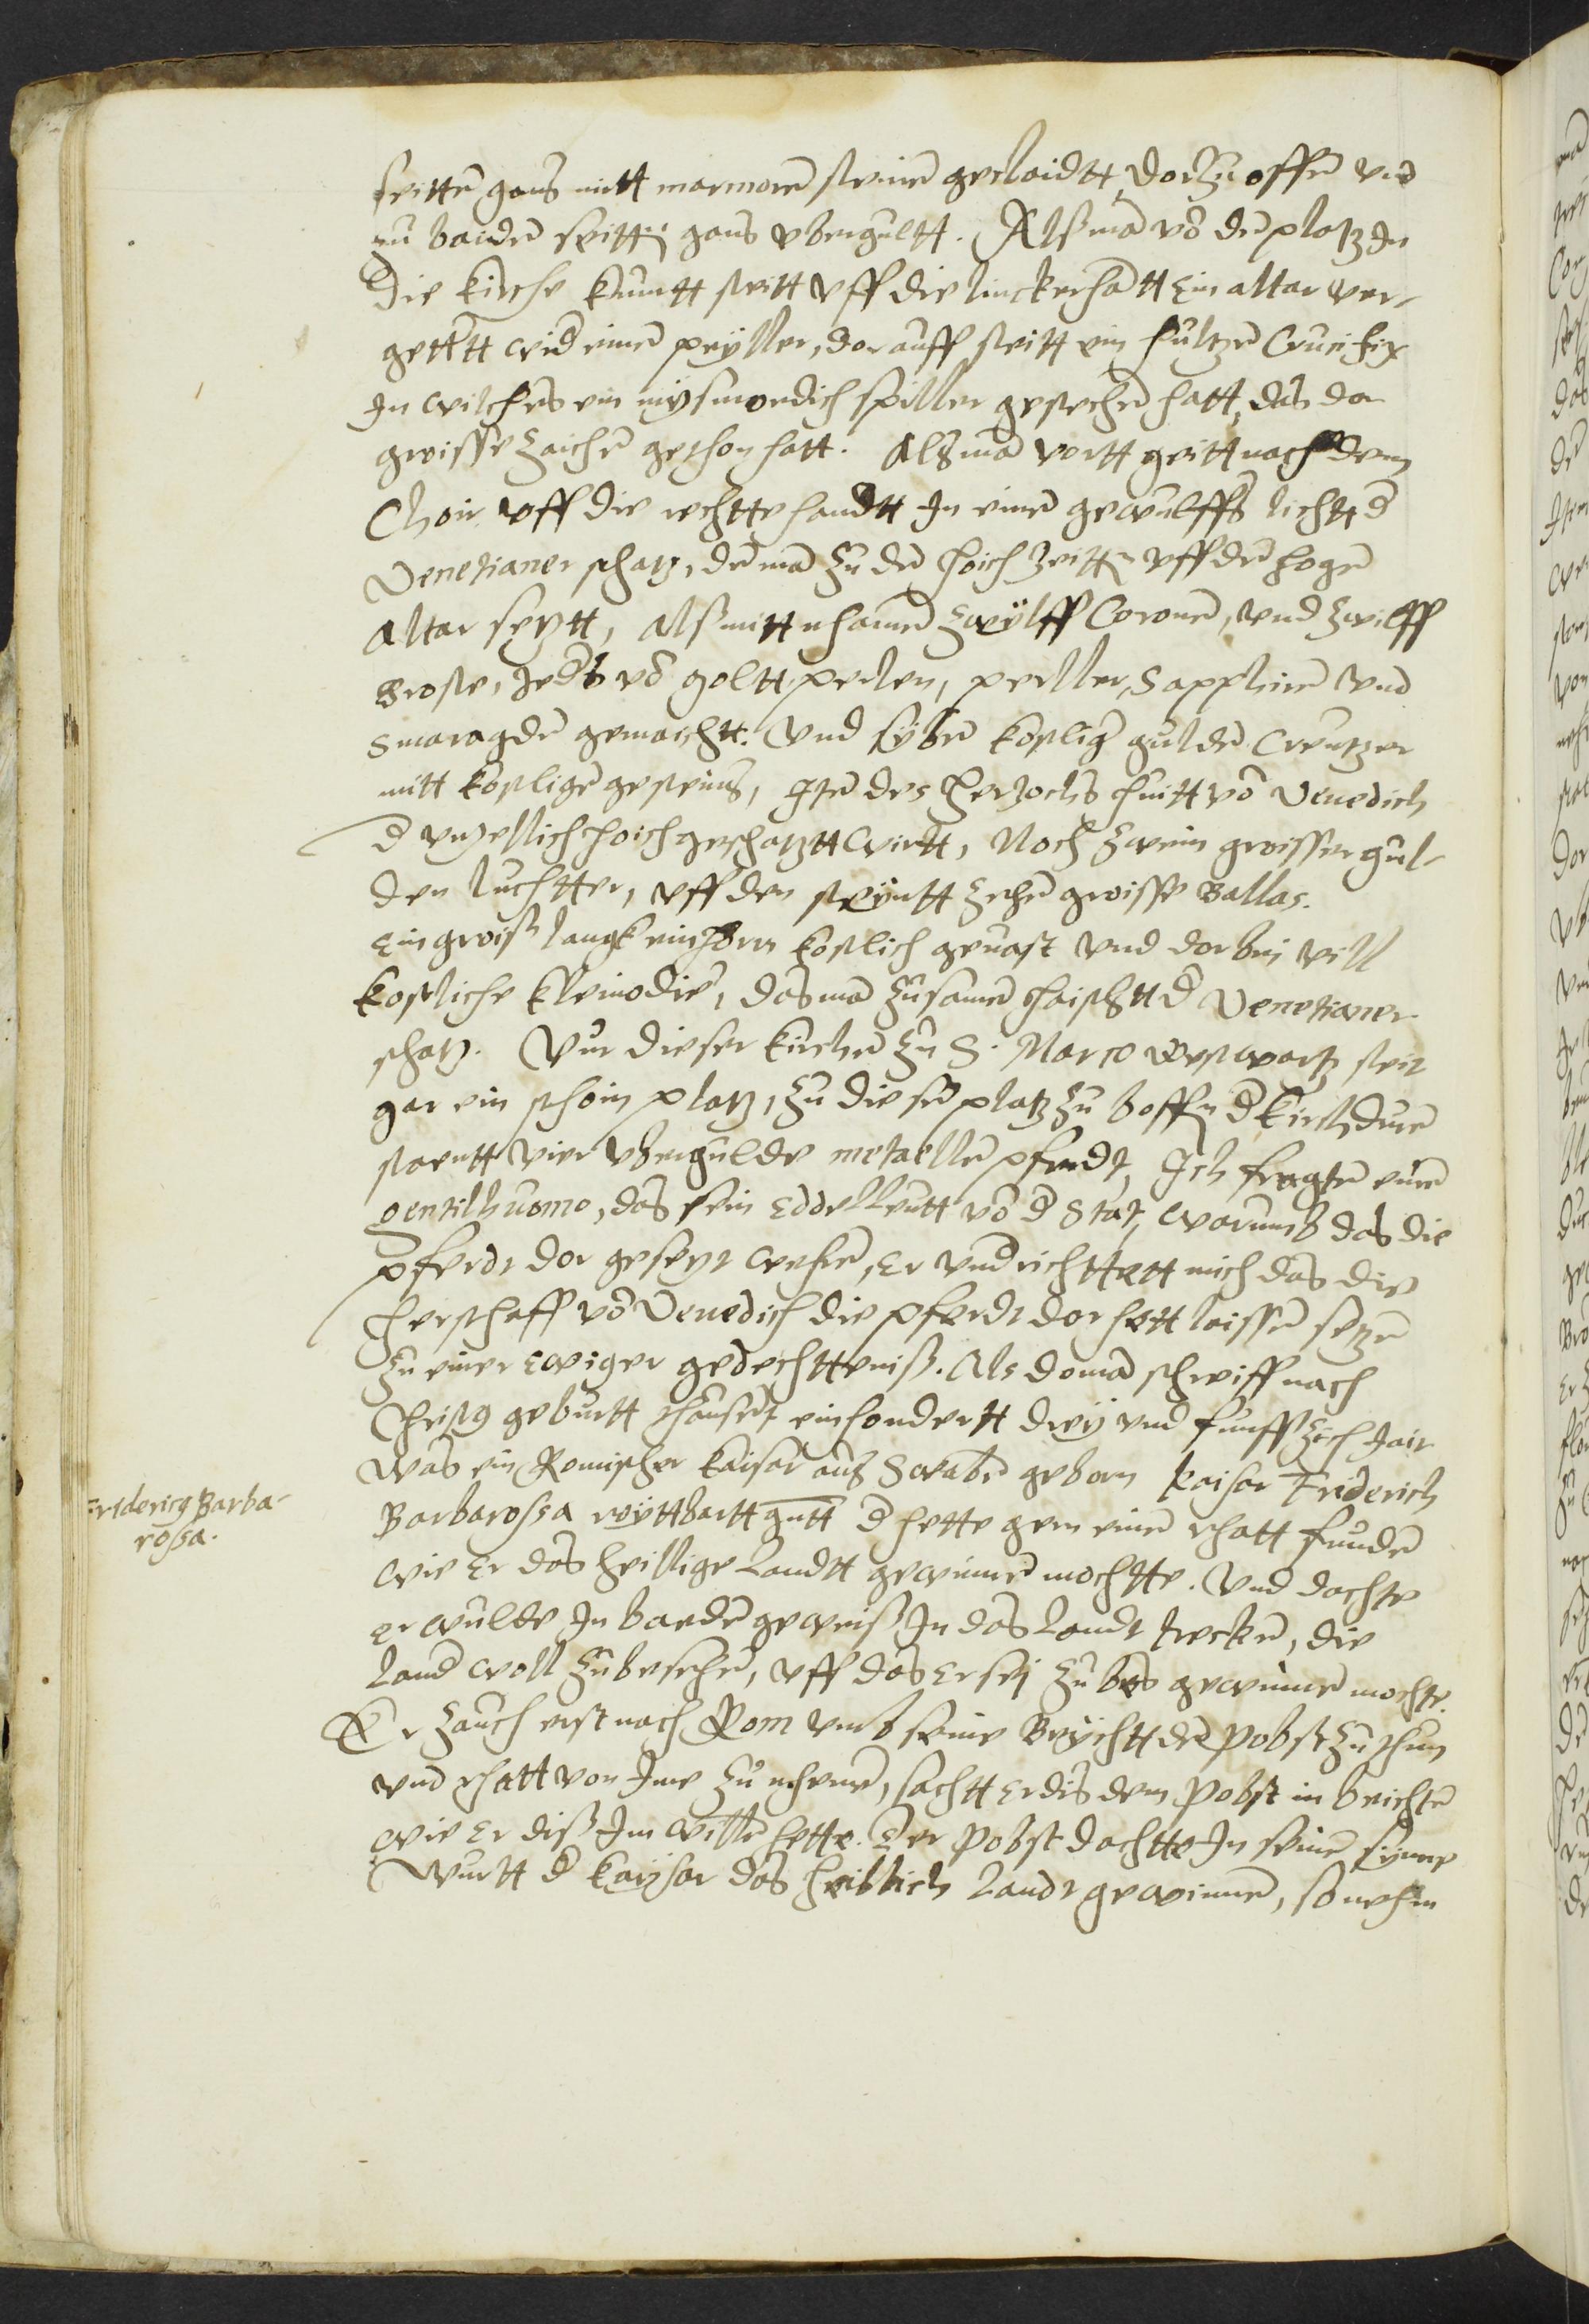 seitte gans mitt marmore steine gecleidtt dorzu offe vnd
zu baide seitte gans vbergultt. Alß ma vo de platz In
die kirche kumtt steitt vff die lincker hatt ein altar ver-
gettertt wid eine peyller, dar auff steitt ein hultze Crucifix
In wilches ein mysmordich spiller gestoche hatt, das dar
groisse zeiche gethon hatt. Als ma vortt geitt nach dem
Choir vff die rechtte handtt In eine gewulffs lichtt d
Venetianer schatz, de ma zu de hoich zeitte vff de hoge
altar seytt, Alß mitt nhame zwylff Corone, vnd zwilff
Broste, Jeds vo goltt perlen, perller, Sapphire vnd
Smaragde gemachtt. Vnd sybe kostlige gulde Creutzer
mitt kostlige gesteins, Ite des Hertzochs huitt vo Venedich
d vntzellich hoich geschatztt wirtt, Noch zwein groisser gul-
den luchtter, vff den steyntt zehe groisse Ballas.
Ein groiß langk einhorn kostlich gevast vnd dorbei vill
kostliche kleinodie, das ma zusame haischtt d Venetianer
schatz. Vur dieser kirche zu S. Marco westwartz steit
gar ein schoin platz, zu diese platz zu boffe d kirchdure
staentt vier vbergulde metaelle pferdt, Ich fragte eine
gentilhuomo, das sein Eddelleutt vo d Stat, warumb das die
pferdt dar gesetzt wehre, er vndrichttett mich das die
herschaff vo Venedich die pferdt dar hett laisse setze
zu einer ewiger gedechtteniß. Als do ma schreiff nach
Christ9 geburtt thausent einhondertt drey vnd funffzich Jair
was ein Romischer kaisar aus Swabe geborn kaisar Friderich
Barbarossa royttbartt gntt d hette gern eine rhatt funde
wie Er das heillige Landtt gewinne mochtte. Vnd dachte
er wulde In baede geweiß In das Landt trecke, die
land woll zu besehe, vff das er sej zu bes gewinne mochte.
Er zauch erst nach Rom vmb seine Beychtt de Pobst zu thun
vnd rhatt von Ime zu nheme, sachtt er dis dem Pobst in beichte
wie er diß Im wille hette. Der Pobst dachtte In seine synne
Wurtt d kaysar das heillich Landt gewinne, so nehm
Fridericq Barba-
rossa.